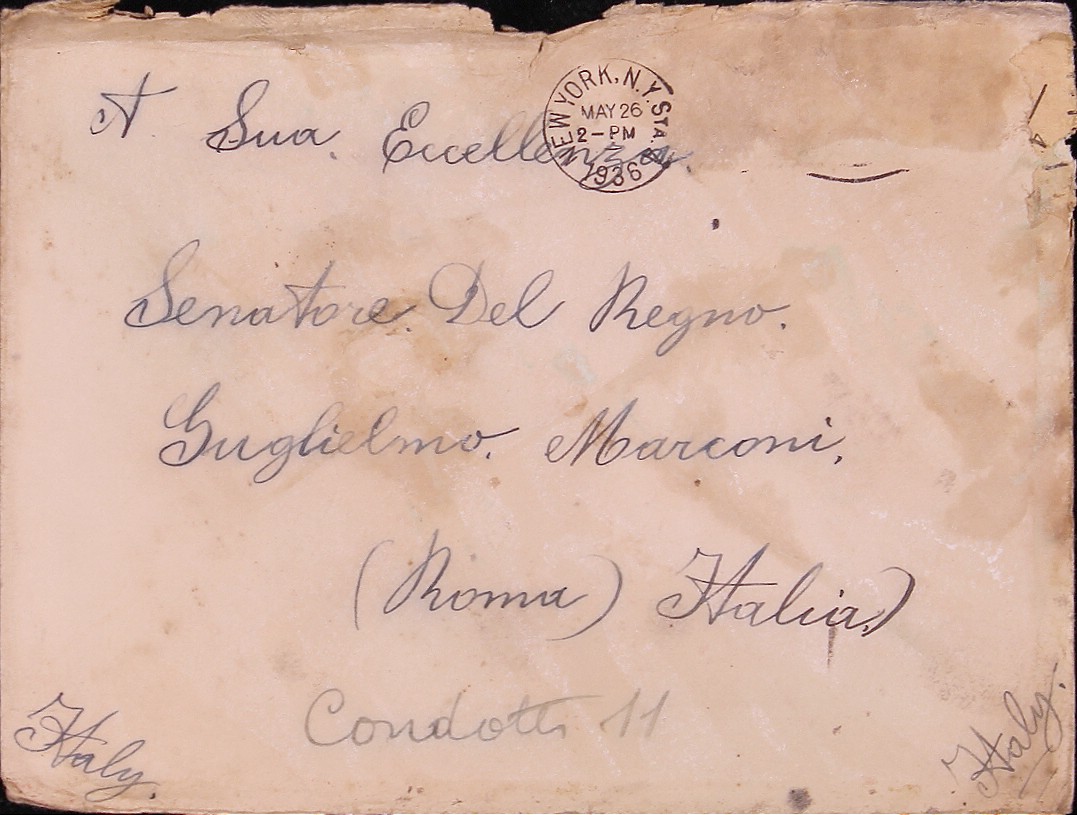 NEW YORK, N.Y. STA.
MAY 26
2-PM
1936
A Sua. Eccellenza.
Senatore. Del Regno.
Guglielmo. Marconi,
(Roma) Italia,)
Condotti 11
Italy.
Italy.